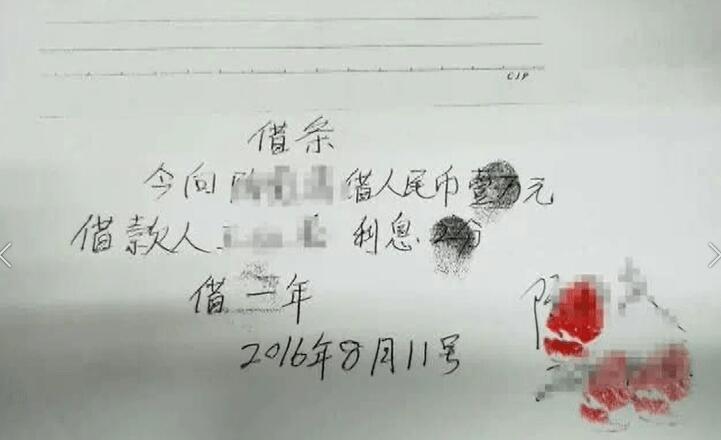 借条
今向 借人民币壹万元
借款人 利息
借一年
2016年8月11号